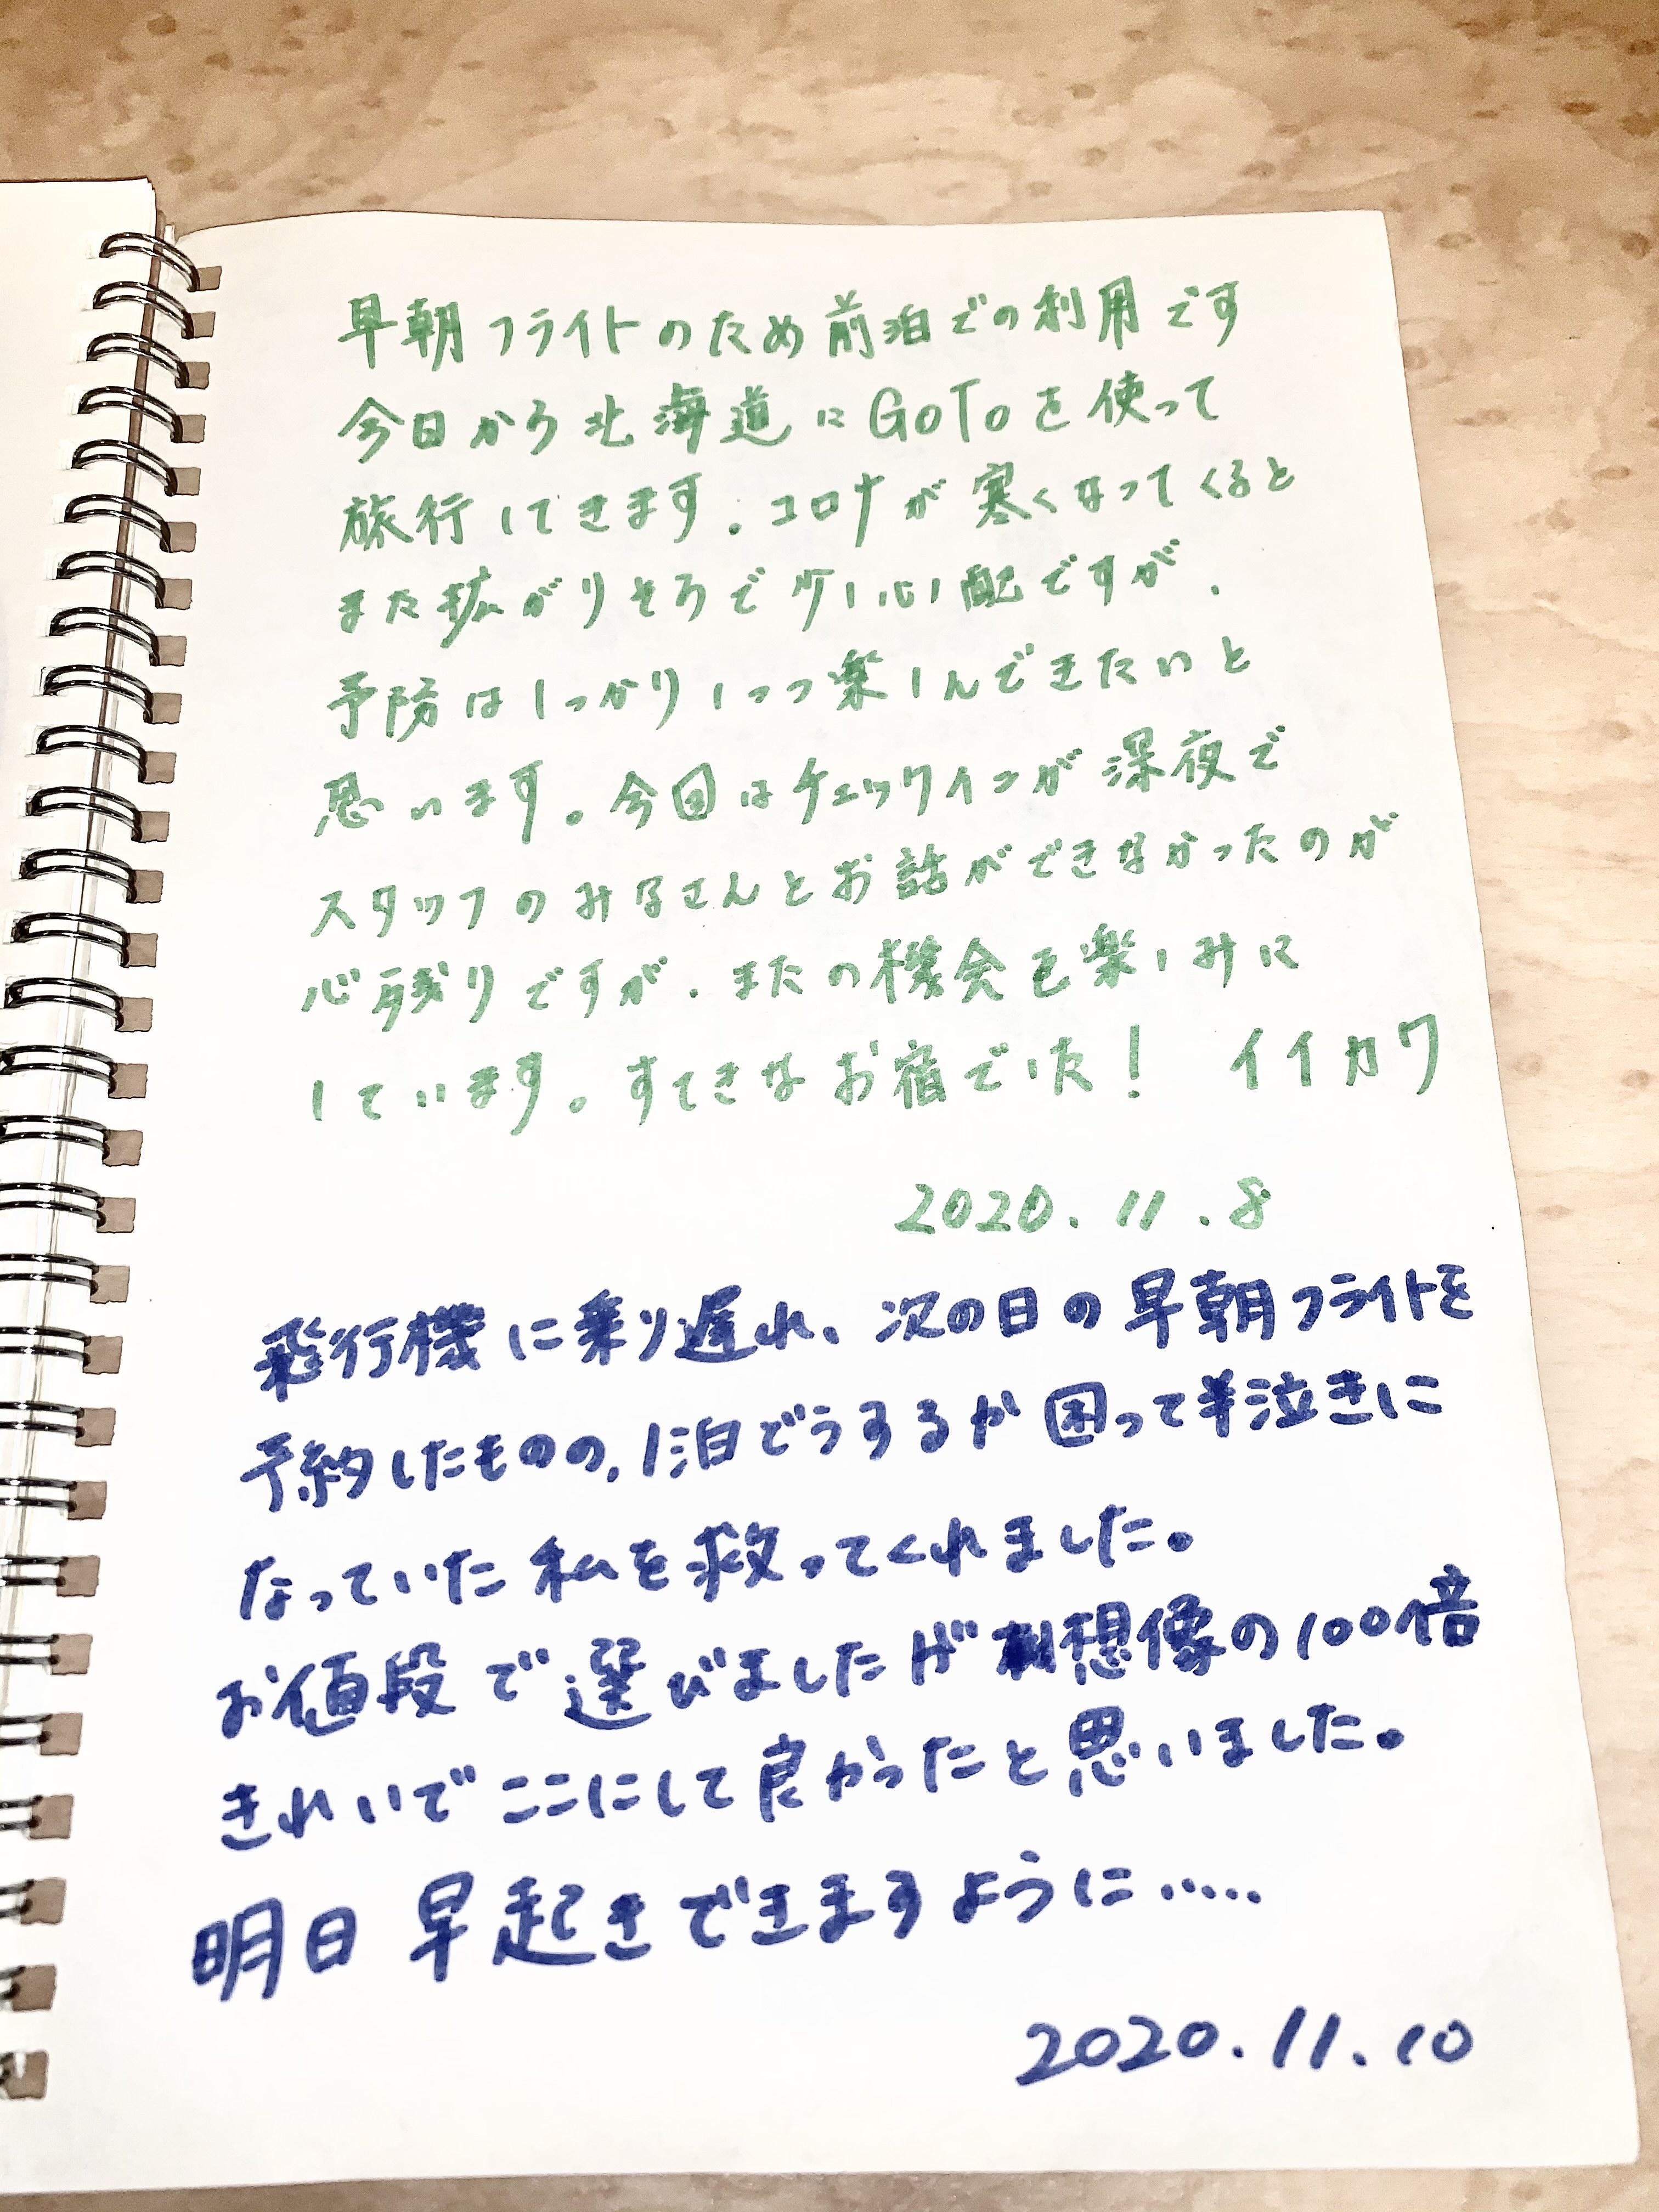 早朝フライトのため前泊での利用です
今日から北海道にGoToを使って
旅行してきます.コロナが寒くなってくると
また拡がりそうで少し心配ですが.
予防はしっかりしつつ楽しんできたいと
思います。今回はチェックインが深夜で
スタッフのみなさんとお話ができなかったのが
心残りですが.またの機会を楽しみに
しています。すてきなお宿でした! イイカワ
2020.11.8
飛行機に乗り遅れ、次の日の早朝フライトを
予約したものの、1泊どうするか困って半泣きに
なっていた私を救ってくれました。
お値段で選びましたが想像の100倍
きれいでここにして良かったと思いました。
明日早起きできますように.....
2020.11.10